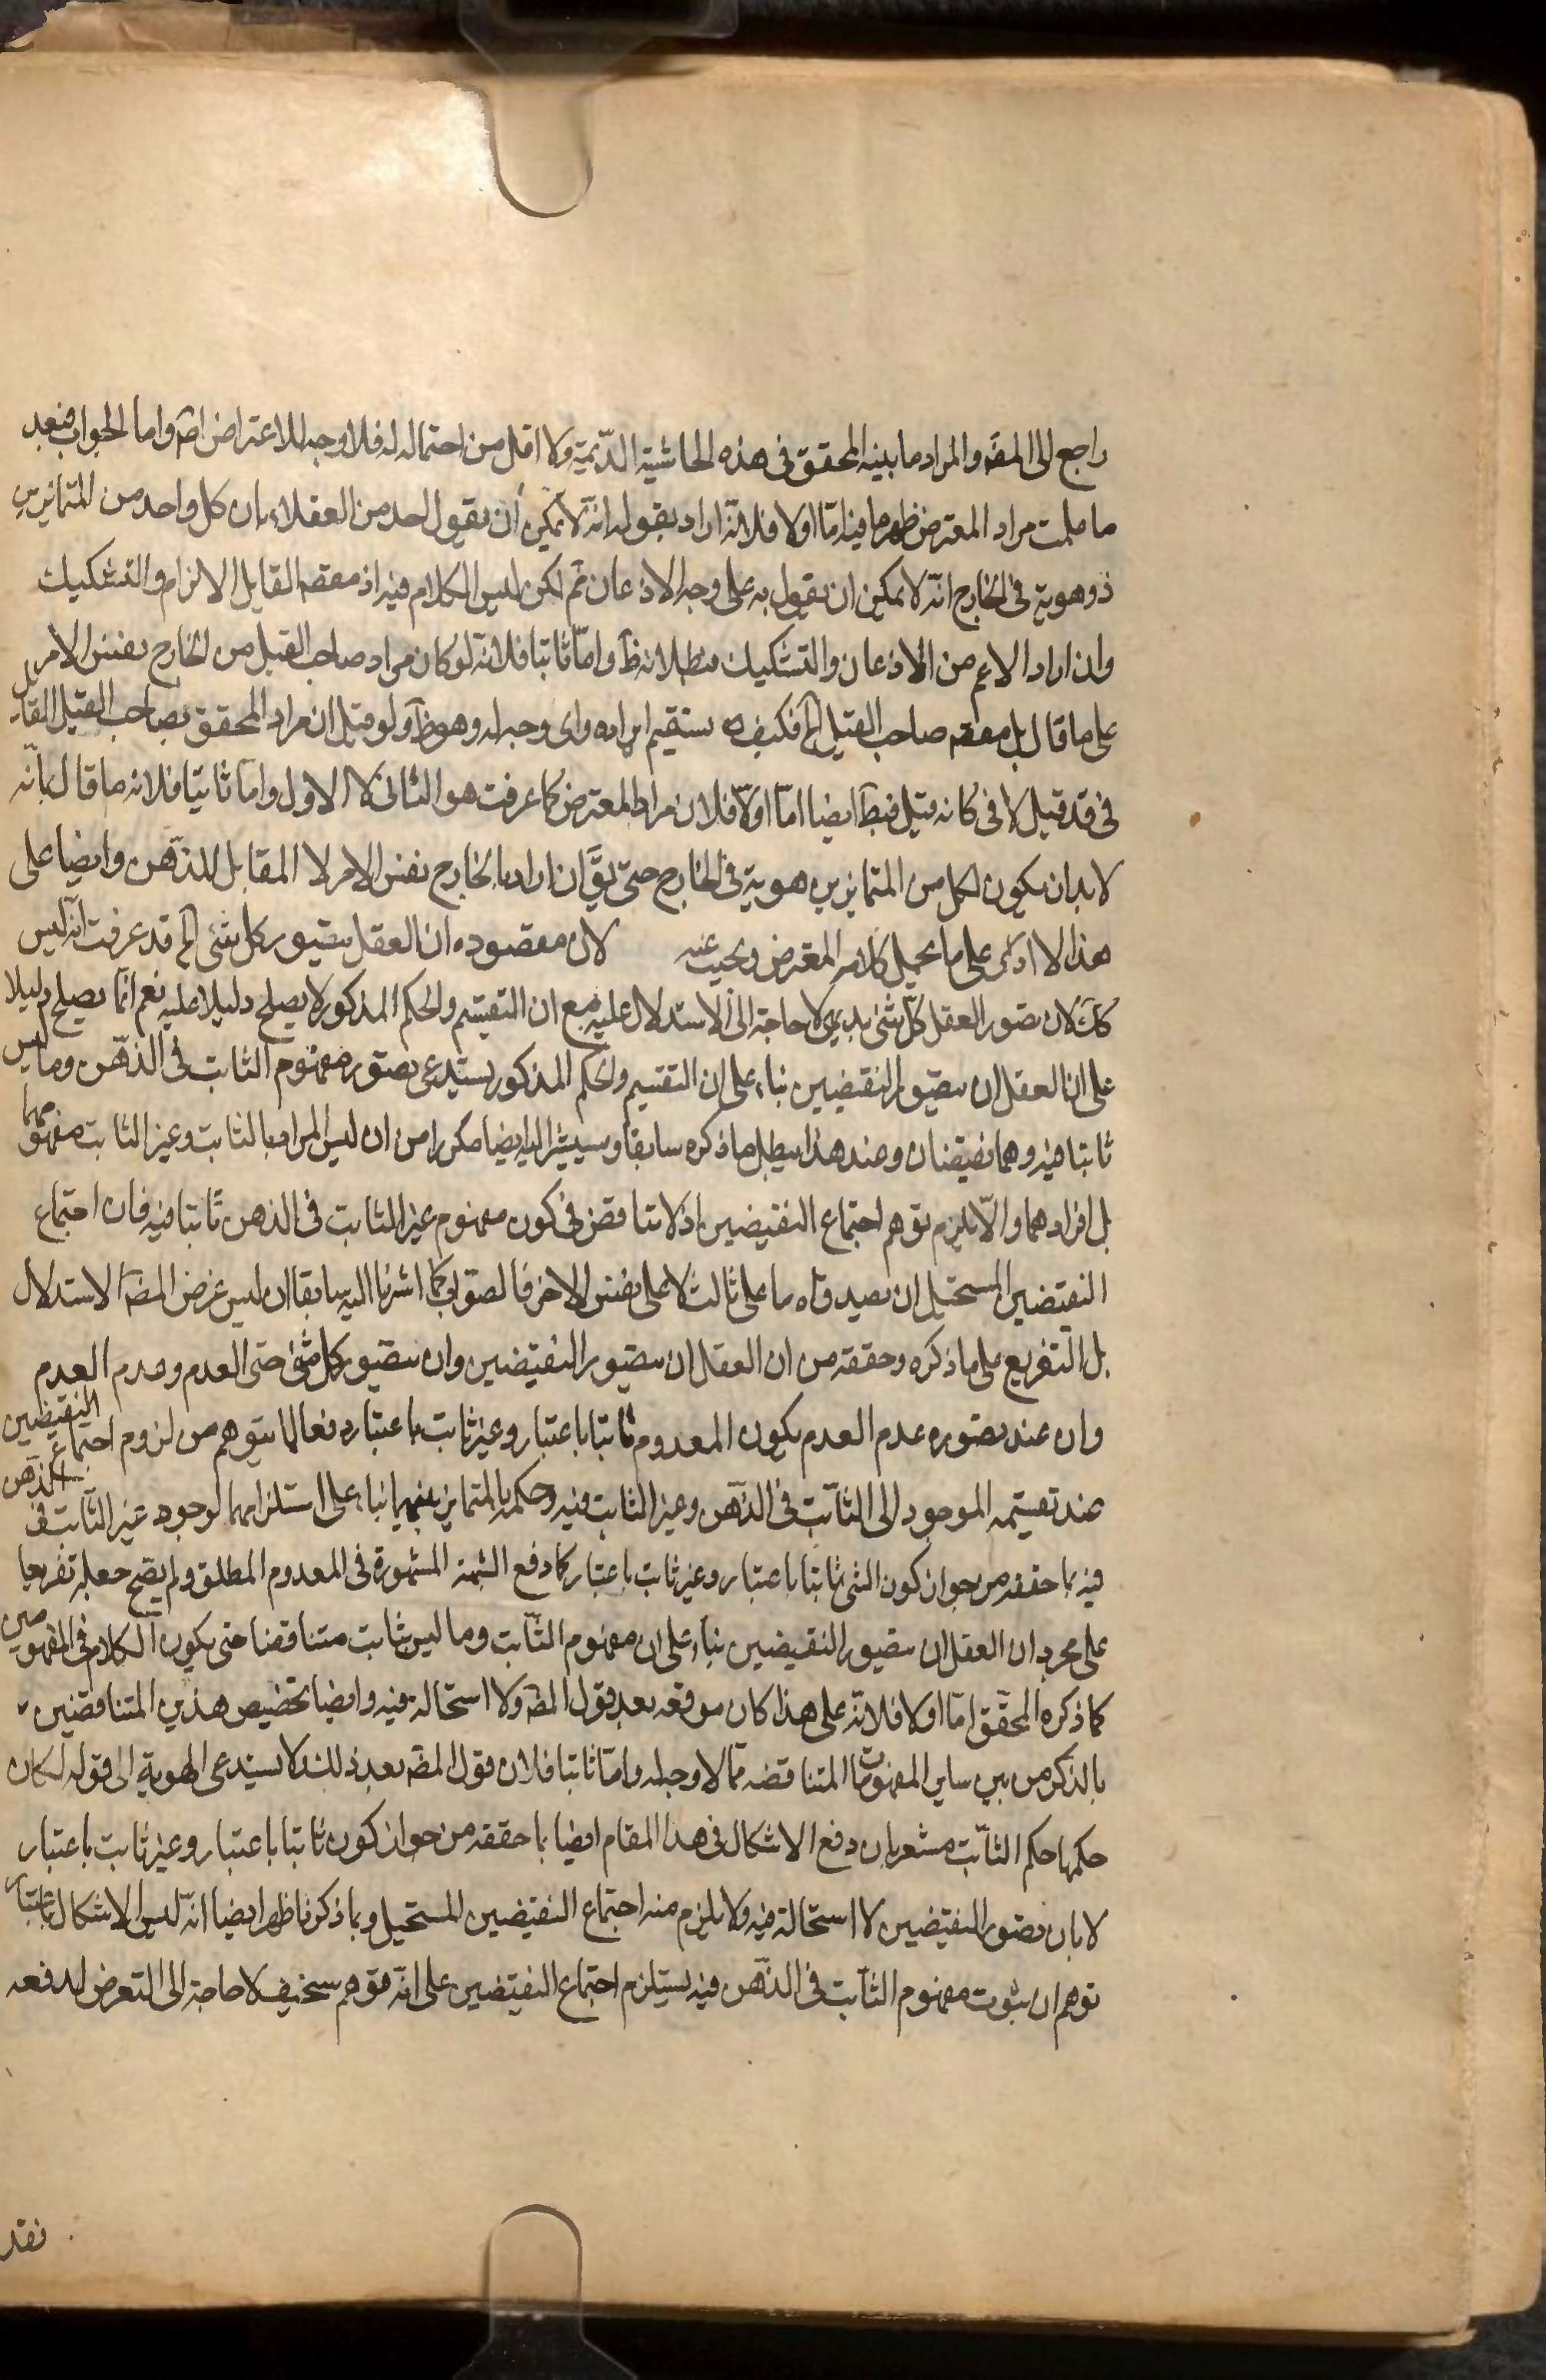 راجع الى المصَ والمراد ما بينه المحقق فى هذه الحاشية القديمة ولا اقل من احتماله له فلا وجه للاعتراض اصَ واما الجواب فبعد
ما علمت مراد المعترض ظهر ما فيه امّا اولا فلانّه اراد بقوله انّه لا يمكن أن يقول احد من العقلاء بان كل واحد من المتمايزين
ذو هوية فى الخارج انّه لا يمكن ان يقول به على وجه الاذعان ثم لكن ليس الكلام فيه اذ مقصَ القايل الالزام والتشكيك
وان اراد الاعم من الاذعان والتشكيك فبطلانه ظَ وامّا ثانيا فلانّه لو كان مراد صاحب القيل من الخارج نفس الامر
على ما قال بل مقصَ صاحب القيل الخ فكيف يستقيم ايراده واى وجه له وهو ظَ ولو قيل ان مراد المحقق بصاحب القيل القايل
فى قد قيل لا فى كانه قيل فبطَ ايضا امّا اولا فلان مراد المعترض كما عرفت هو الثانى لا الاول وامّا ثانيا فلانه ما قال بانّه
لا بد ان يكون لكل من المتمايزين هوية فى الخارج حتى يقَ ان اراد بالخارج نفس الامر لا المقابل للذهن وايضا على
هذا لا على ما يحمل كلام المعترض ويجيب عنه لان مقصوده ان العقل يتصور كل شئ الخ قد عرفت انّه ليس
كك لان تصور العقل كلّ شئ بديهى لا حاجة الى الاستدلال عليه مع ان التقسيم والحكم المذكور لا يصلح دليلا عليه نعم انّما يصلح دليلا
على ان العقل ان يتصور النقيضين بناء على ان التقسيم والحكم المذكور يستدعى تصور مفهوم الثابت فى الذهن وما ليس
ثابتا فيه وهما نقيضان وعند هذا يبطل ما ذكره سابقا وسيشير اليه ايضا مكررا من ان ليس المراد بالثابت وغير الثابت مفهومهما
بل افرادهما والّا يلزم توهم اجتماع النقيضين اذ لا تناقض فى كون مفهوم غير الثابت فى الذهن ثابتا فيه فان اجتماع
النقيضين المستحيل ان يصدقا على ثالث لا على نفس الاخر فالصواب كما اشرنا اليه سابقا ان ليس غرض المصَ الاستدلال
بل التفريع على ما ذكره وحققه من ان العقل ان يتصور النقيضين وان يتصور كل شئ حتى العدم وعدم العدم
وان عند تصوره عدم العدم يكون المعدوم ثابتا باعتبار وغير ثابت باعتبار دفعا لما يتوهم من لزوم اجتماع النقيضين
عند تقسيمه الموجود الى الثابت فى الذهن وغير الثابت فيه وحكمه بالتمايز بينهما بناء على استلزامهما لوجود غير الثابت فى الذهن
فيه بما حققه من جواز كون الشئ ثابتا باعتبار وغير ثابت باعتبار كما دفع الشبهة المشهورة فى المعدوم المطلق ولم يصح جعله تفريعا
على مجرد ان العقل ان يتصور النقيضين بناء على ان مفهوم الثابت وما ليس بثابت متناقضا حتى يكون الكلام فى المفهومين
كما ذكره المحقق امّا اولا فلانّه على هذا كان موقعه بعد قول المصَ ولا استحالة فيه وايضا تخصيص هذين المتناقضين
بالذكر من بين ساير المفهومات المتناقضه ممّا لا وجه له وامّا ثانيا فلان قول المصَ بعد ذلك ولا يستدعى الهوية الى قوله لكان
حكمها حكم الثابت مشعر بان دفع الاشكال فى هذا المقام ايضا بما حققه من جواز كون ثابتا باعتبار وغير ثابت باعتبار
لا بان تصور النقيضين لا استحالة فيه ولا يلزم منه اجتماع النقيضين المستحيل وبما ذكرنا ظهر ايضا انّه ليس الاشكال
توهم ان ثبوت مفهوم الثابت فى الذهن فيه يستلزم اجتماع النقيضين على انّه توهم سخيف لا حاجة الى التعرض لدفعه
نقد